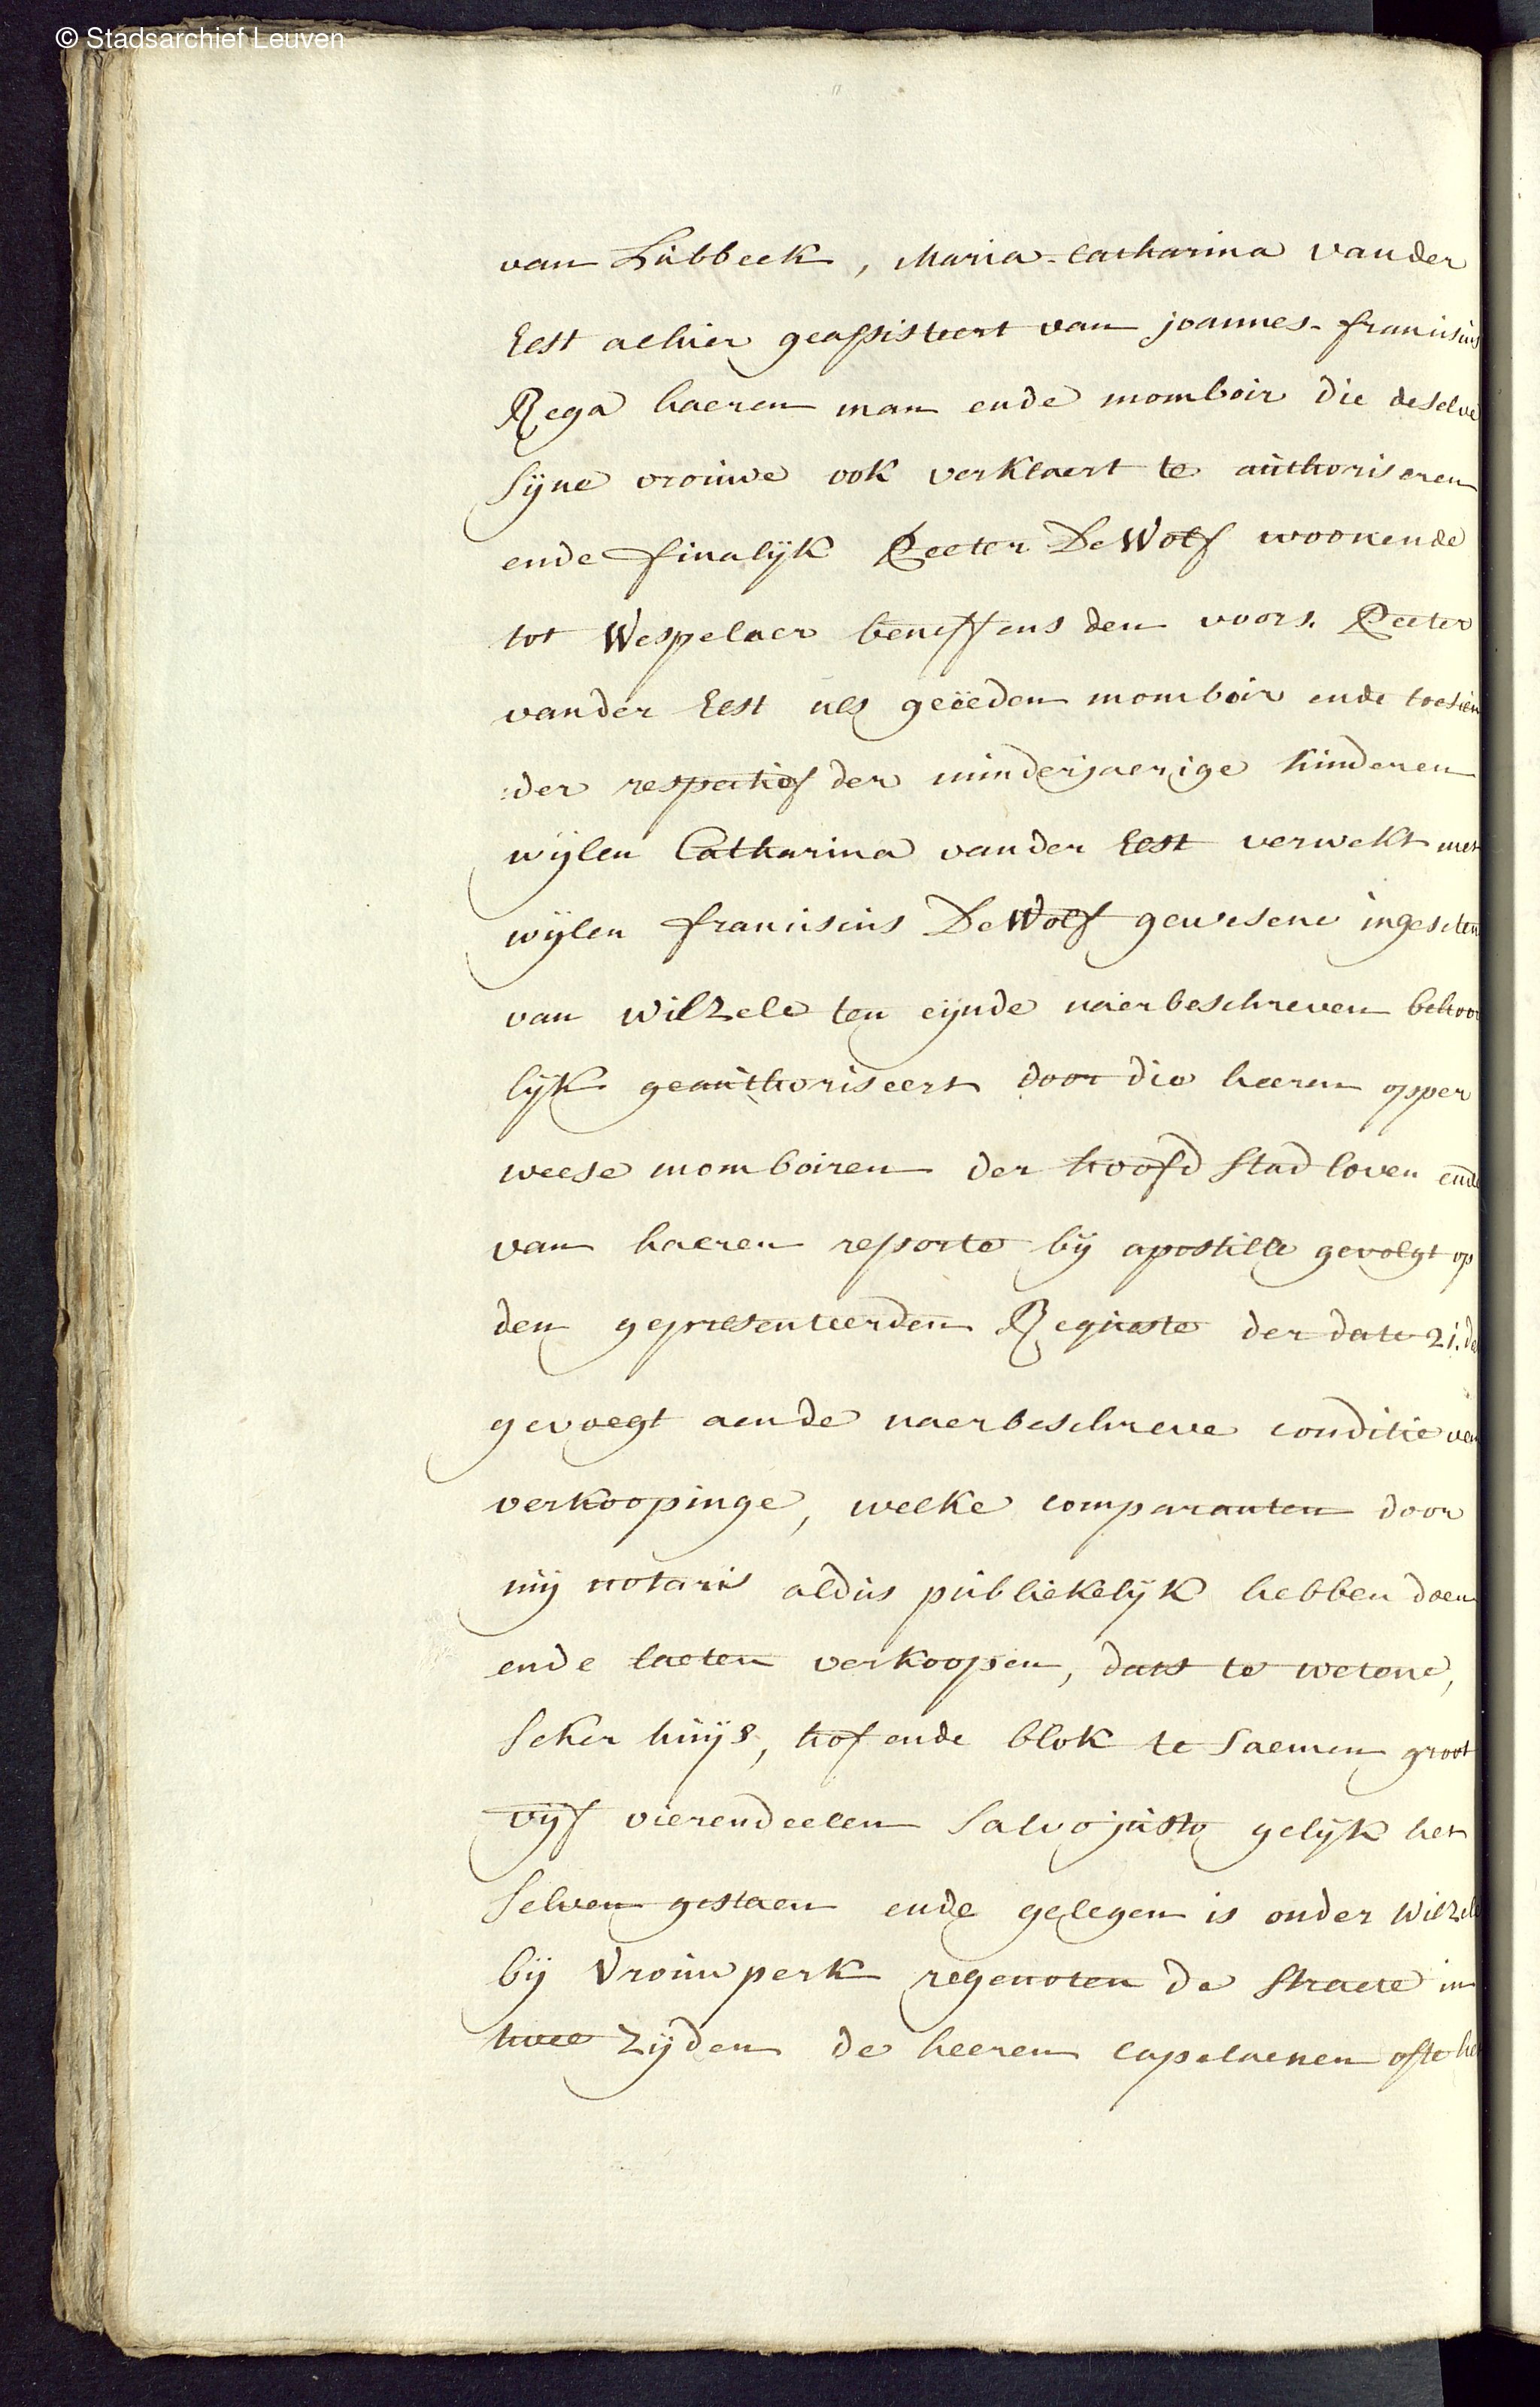 © Stadsarchief Leuven
van Lubbeek, Maria-Catharina vander
Eest alhier geassisteert van joannes-franciscus
Rega haeren man ende momboir die deselve
sijne vrouwe ook verklaert te authoriseren
ende finalijk Peeter De Wolf woonende
tot Wespelaer beneffens den voors. Peeter
vander Eest als geëeden momboir ende toesien
:der respectief der minderjaerige kinderen
wijlen Catharina vander Eest verwekt met
wijlen franciscus De Wolf gewesene ingeseten
van Wilzele ten eijnde naerbeschreven behoor
lijk geauthoriseert door die heeren opper
weese momboiren der hoofd stad loven ende
van haeren ressorte bij apostille gevolgt op
den gepresenteerden Requeste der date 21. de
gevoegt aende naerbeschreve conditie van
verkoopinge, welke comparanten door
mij notaris aldus publiekelijk hebben doen
ende laeten verkoopen, dats te wetene,
seker huijs, hof ende blok te saemen groot
vijf vierendeelen salvo justo gelijk het
selven gestaen ende gelegen is onder Wilzele
bij Vrouwperk regenoten de straete in
twee zijden de heeren capelaenen ofte he